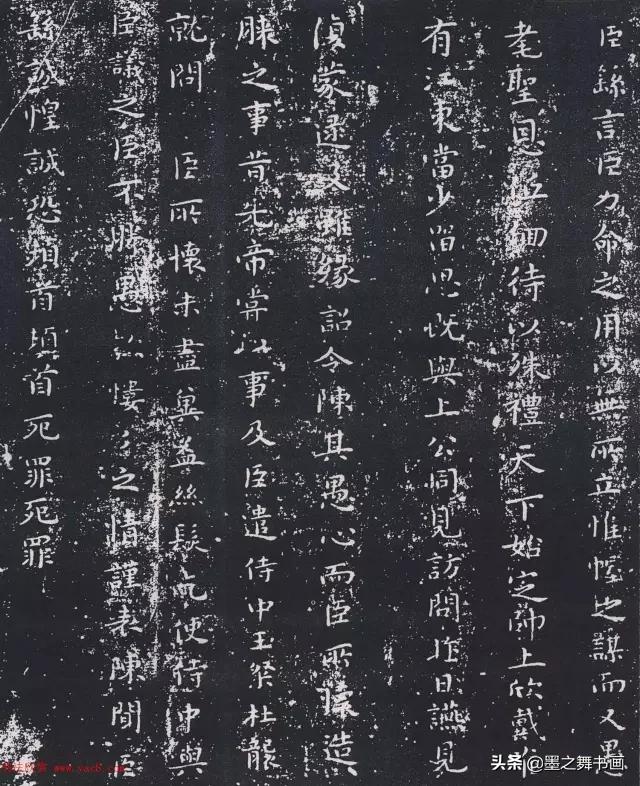 臣繇言臣力命之用以無所立惟幄之謀而又愚
耄聖恩低佪待以殊禮天下始定帥上欣戴
有江東當少留思既與上公同見訪問昨日讌見
復蒙逮及雖緣詔令陳其愚心而臣所懷造
膝之事昔先帝嘗以事及臣遣侍中王粲杜襲
就問 臣所懷未盡奚益絲髮乞使侍中與
臣議之臣不勝愚款慺々之情謹表陳聞臣
繇誠惶誠恐頓首頓首死罪死罪
www.yac8.com
头条 @墨之舞书画